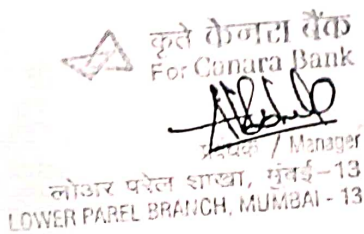 कृते केनरा बैंक
For Canara Bank
प्रबंधक / Manager
लोअर परेल शाखा, मुंबई-13
LOWER PAREL BRANCH, MUMBAI - 13